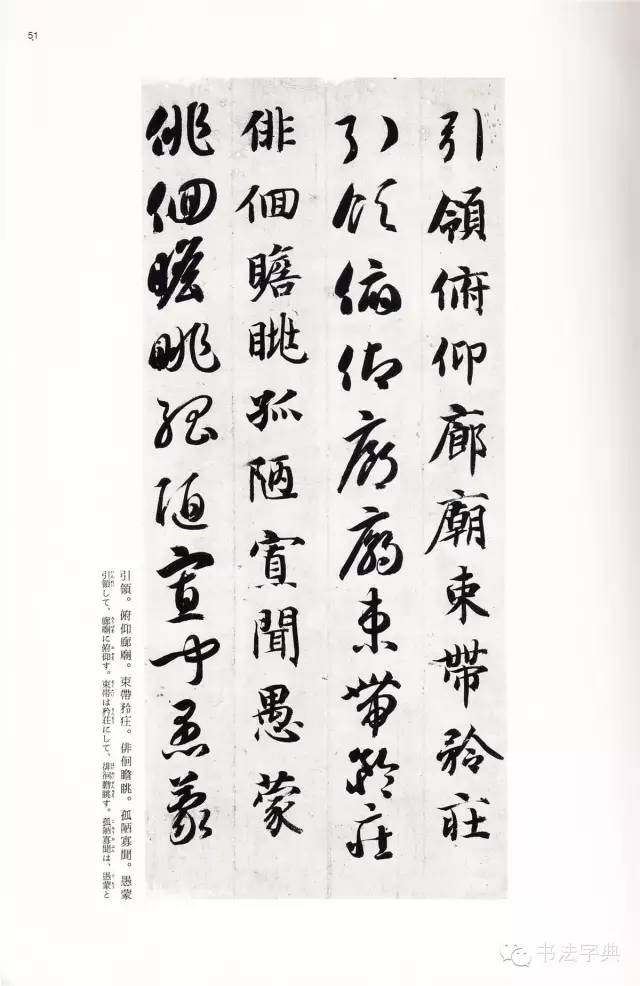 51
引領俯仰廊廟束帶矜莊
引領俯仰廊廟束帶矜莊
俳佪瞻眺孤陋寡聞愚蒙
俳佪瞻眺孤陋寡聞愚蒙
引領。俯仰廊廟。束帶矜莊。俳佪瞻眺。孤陋寡聞。愚蒙
引領して、廊廟に俯仰す。束帯は矜荘にして、俳佪瞻眺す。孤陋寡聞は、愚蒙と
书法字典